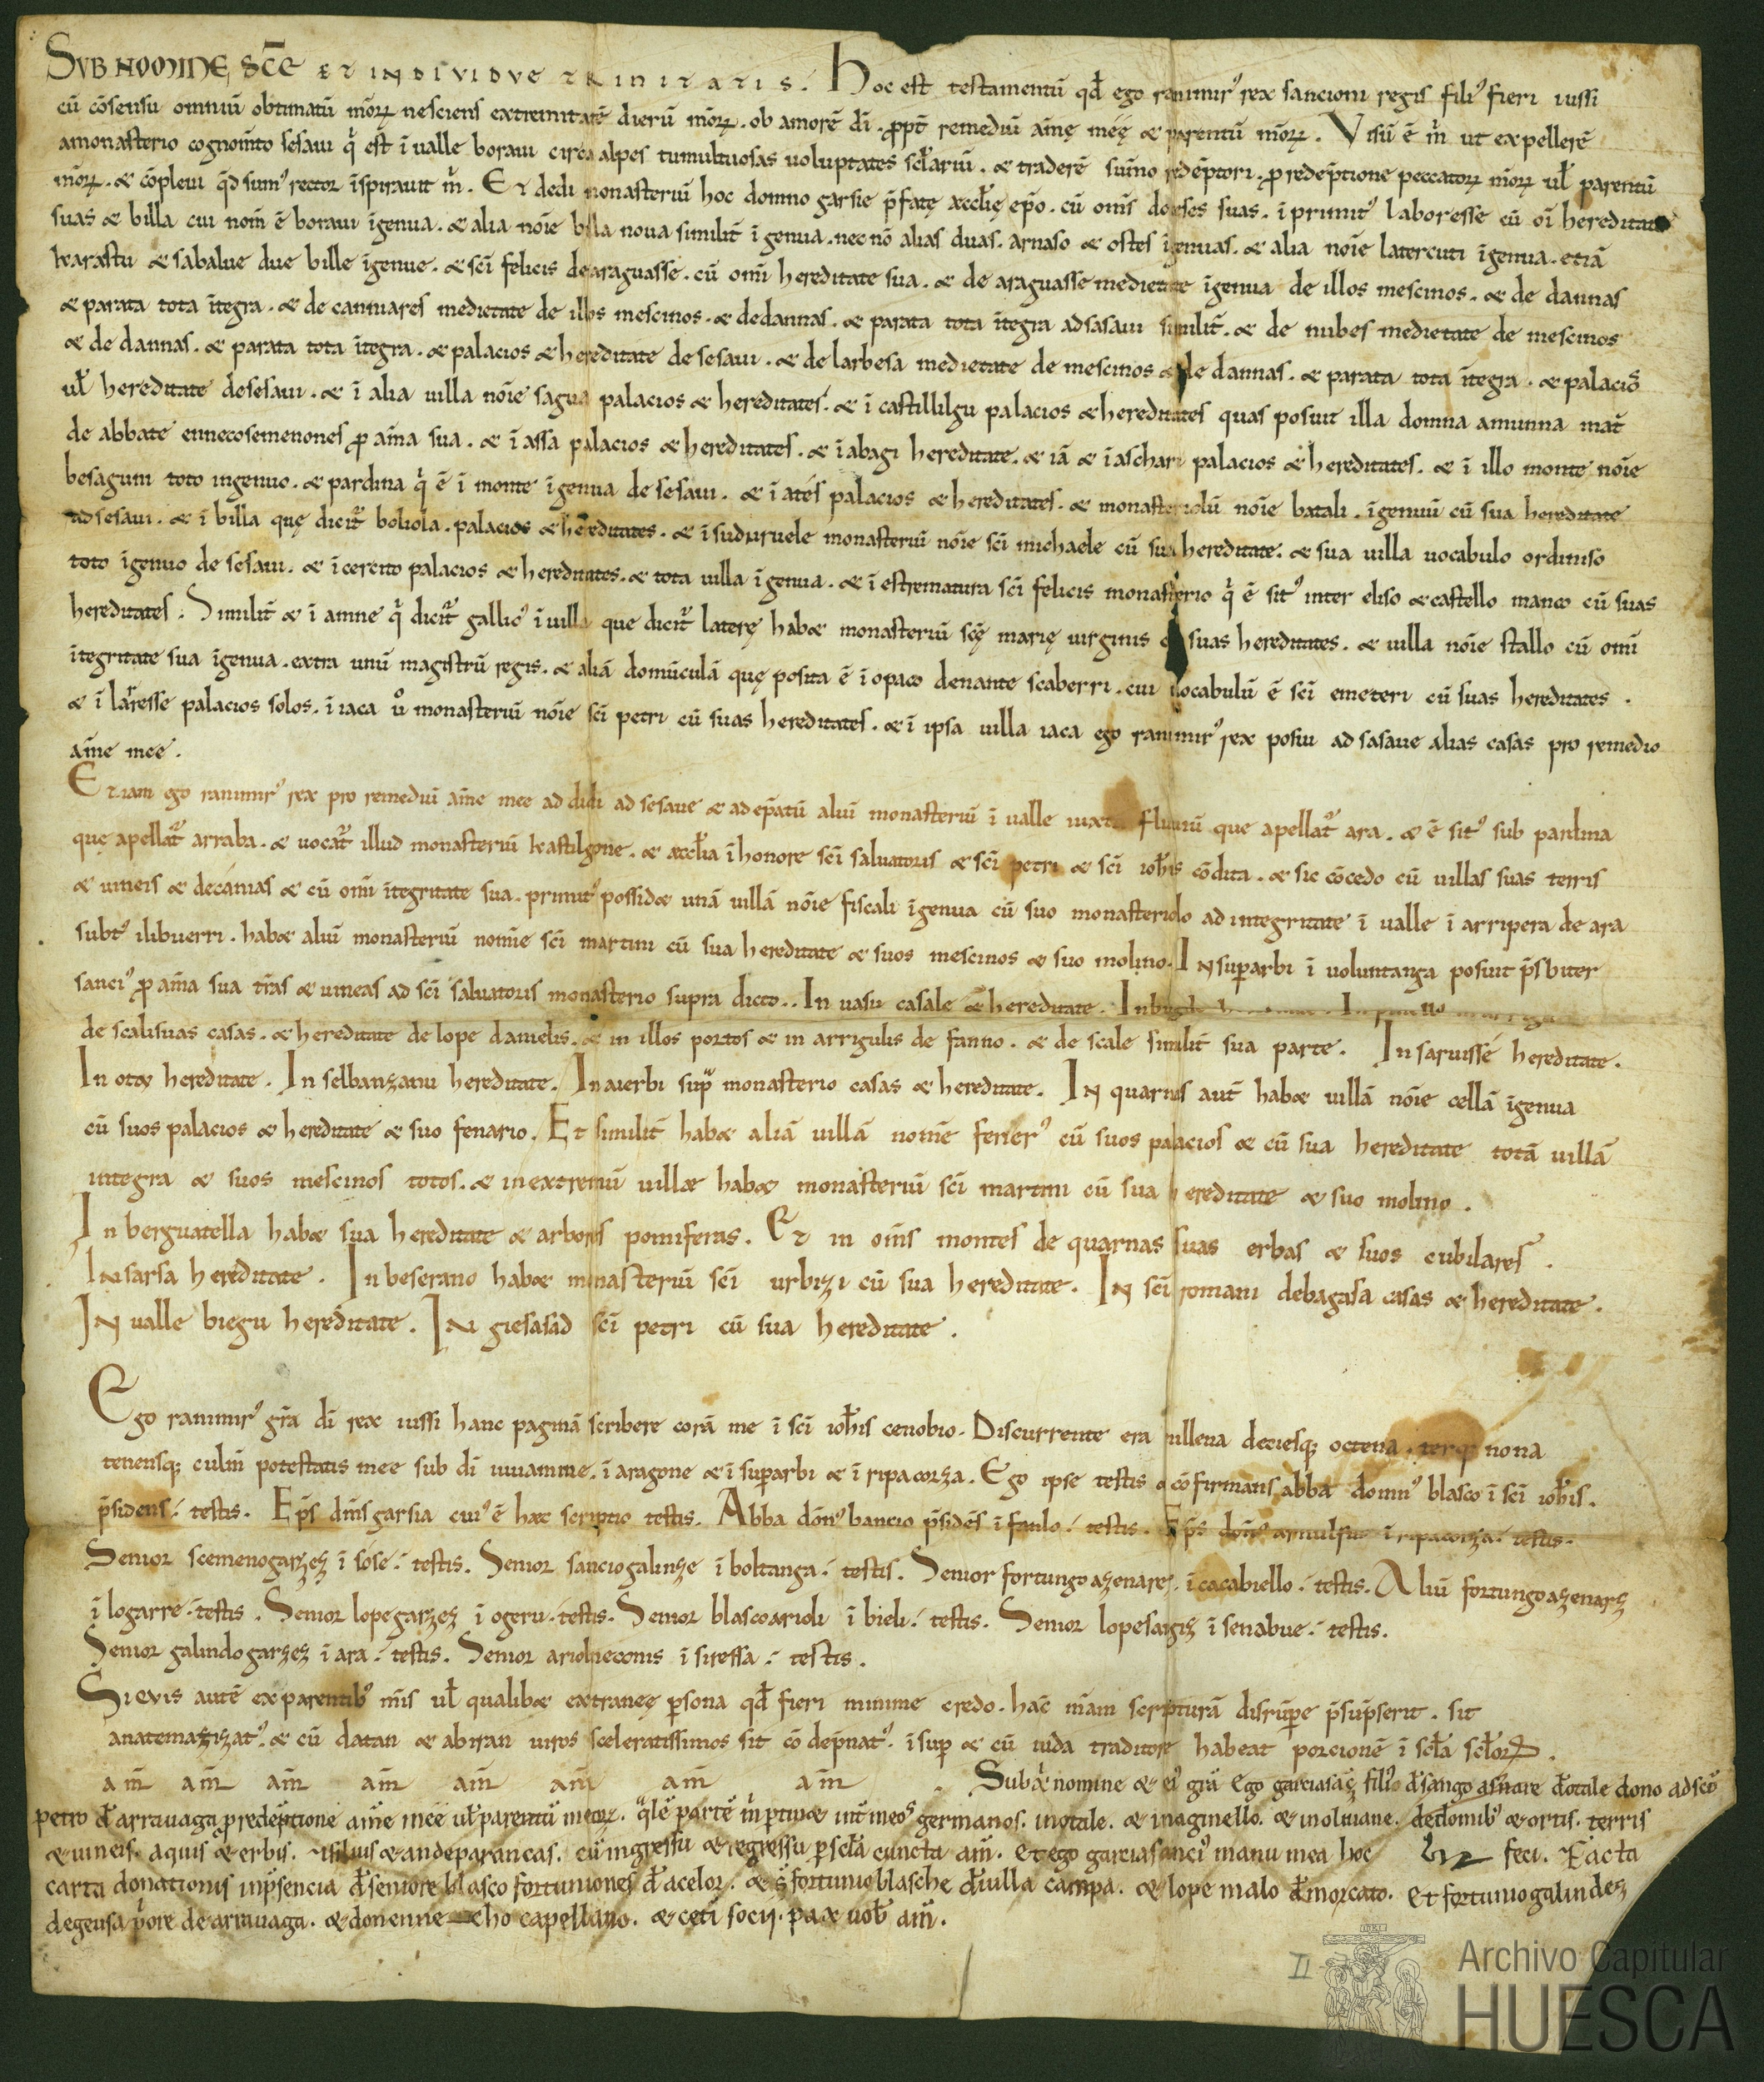 SVB NOMINE SCE ET INDIVIDVE TRINITATIS. Hoc est testamentū qđ ego ranimir᾽ rex sancioni regis fili᾽ fieri iussi
cū cōsensu omniū obtimatū mōrꝝ nesciens extremitatē dierū mōrꝝ. ob amorē dī. ꝓpt̄ remediū aīmę meę & parentū mōrꝝ. Visū ē m̄ ut expellerē
amonasterio cognoīnto sesaui q̄ est ī ualle boraui circa alpes tumultuosas uoluptates scl̄ariū. & traderē sūmo redēptori. ꝓ redēptione peccatorꝝ mōrꝝ ul̄ parentū
mōrꝝ. & cōpleui qđ sum᾽ rector īspirauit m̄. Et dedi monasteriū hoc domno garsie p̄fatę æccl̄ię ep̄o. cū om̄s suas. ī primit᾽ laboresse cū oī hereditate
suas & billa cui nom̄ ē boraui īgenua. & alia nōie billa noua similit̄ īgenua. nec nō alias duas. arnaso & ostes īgenuas. & alia nōie latercuti īgenua. etiā
karastu & sabalue due bille īgenue. & sc̄i felicis dearaguasse. cū omī hereditate sua. & de araguasse medietate īgenua de illos mescinos. & de dannas
& parata tota ītegra. & de canniares medietate de illos mescinos. & dedannas. & parata tota ītegra adsasaui similit̄. & de nubes medietate de mescinos
& de dannas. & parata tota ītegra. & palacios & hereditate de sesaui. & de larbesa medietate de mescinos & de dannas. & parata tota ītegra. & palacios
ul̄ hereditate desesaui. & ī alia uilla nōie sagua palacios & hereditates. & ī castillilgu palacios & hereditates quas posuit illa domna amunna mat̄
de abbate ennecosemenones ꝓ aīma sua. & ī assa palacios & hereditates. & ī abagi hereditate. & iā & ī aschari palacios & hereditates. & ī illo monte nōie
besaguni toto ingenuo. & pardina q̄ ē ī monte īgenua de sesaui. & ī ates palacios & hereditates. & monasteriolū nōie batali. īgenuū cū sua hereditate
ad sesaui. & ī billa quę dicit̄ boliola. palacios & hereditates. & ī suduruele monasteriū nōie sc̄i michaele cū sua hereditate. & sua uilla uocabulo ordiniso
toto īgenuo de sesaui. & ī cerc̄ito palacios & hereditates. & tota uilla īgenua. & ī estrematura sc̄i felicis monasterio q̄ ē sit᾽ inter eliso & castello manco cū suas
hereditates. Similit̄ & ī amne q̄ dicit̄ gallic᾽ ī uilla que dicit̄ laterę hab& monasteriū sc̄ę marię uirginis cū suas hereditates. & uilla nōie stallo cū omī
ītegritate sua īgenua. extra unū magistrū regis. & aliā domūculā quę posita ē ī opaco denante scaberri. cui uocabulū ē sc̄i emeteri cū suas hereditates.
& ī laresse palacios solos. ī iaca u᾽ monasteriū nōie sc̄i petri cū suas hereditates. & ī ipsa uilla iaca ego ranimir᾽ rex posui ad sasaue alias casas pro remedio
aīme mee.
Etiam ego ranimir᾽ rex pro remediū aīme mee ad didi ad sesaue & ad ep̄atū aliū monasteriū ī ualle iuxta fluuiū que apellat᾽ ara. & ē sit᾽ sub pardina
que apellat᾽ arraba. & uocat᾽ illud monasteriū kastilgone. & æccl̄ia ī honore sc̄i saluatoris & sc̄i petri & sc̄i ioh̄is cōdita. & sic cōcedo cū uillas suas terris
& uineis & decanias & cū omī ītegritate sua. primit᾽ possid& unā uillā nōie fiscali īgenua cū suo monasteriolo ad integritate ī ualle ī arripera de ara
subt᾽ ilibuerri. hab& aliū monasteriū nomīe sc̄i martini cū sua hereditate & suos mescinos & suo molino. In suꝑarbi ī uoluntanga posuit p̄sbiter
sanci᾽ ꝓ aīma sua t̄ras & uineas ad sc̄i saluatoris monasterio supra dicto.. In uasu casale & hereditate.
de scalisuas casas. & hereditate de lope danielis. & in illos portos & in arrigulis de fanno. & de scale similit̄ sua parte. In saruisse hereditate.
In otæ hereditate. In selbanzanu hereditate. In aierbi supᵃ monasterio casas & hereditate. In quarnas aut̄ hab& uillā nōie cellā īgenua
cū suos palacios & hereditate & suo fenario. Et similit̄ hab& aliā uillā nomē ferrer᾽ cū suos palacios & cū sua hereditate totā uillā
integra & suos mescinos totos. & inextremū uillæ hab& monasteriū sc̄i martini cū sua hereditate & suo molino.
In berguatella hab& sua hereditate & arbores pomiferas. Et in om̄s montes de quarnas suas erbas & suos cubilares.
In sarsa hereditate. In beserano hab& monasteriū sc̄i urbizi cū sua hereditate. In sc̄i romani debagasa casas & hereditate.
In ualle biegu hereditate. In giesasad sc̄i petri cū sua hereditate.
Ego ranimir᾽ gr̄a dī rex iussi hanc paginā scribere corā me ī sc̄i ioh̄is cenobio. Discurrente era millena deciesq; octena. terq; nona
tenensq; culm̄ potestatis mee sub dī iuuamine. ī aragone & ī suꝑarbi & ī ripacorza. Ego ipse testis & cōfirmans abba domn᾽ blasco ī sc̄i ioh̄is.
p̄sidens: testis. Ep̄s dn̄s garsia cui᾽ ē hæc scriptio testis. Abba dōn᾽ bancio p̄sidēs ī fanlo: testis. Ep̄s dōn᾽ arnulfus ī ripacorza: testis.
Senior scemenogarzez ī sose: testis. Senior sanciogalinze ī boltanga: testis. Senior fortungoazenares. ī cacabiello: testis. Aliū fortungoazenarz
ī logarre: testis. Senior lopegarzez ī ogeru: testis. Senior blascoarioli ī bieli: testis. Senior lopesangiz ī senabue: testis.
Senior galindogarzez ī ara: testis. Senior ariolneconis ī siressa: testis.
Si cuis autē ex parentib᾽ mīs ul̄ qualib& extraneę ꝑsona qđ fieri minime credo. hāc nr̄am scripturā disrūpe p̄sūpserit. sit
anatemazizat᾽. & cū datan & abiran uiros sceleratissimos sit cōdēpnat᾽. īsuꝑ & cū iuda traditore habeat porcionē ī scl̄a scl̄orꝝ.
am̄ am̄ am̄ am̄ am̄ am̄ am̄ am̄ . Sub nomine & ei᾽ gr̄a Ego garciasāz filio đ sango asnare đ otale dono ad scō
petro đ arrauaga ꝓ redēptione aīme mee ul̄ parentū meorꝝ. q̄lē partē m̄ ꝑtin& int̄ meos germanos. inotale. & inaginello. & inoliuane. dedomib᾽ & ortis. terris
& uineis. aquis & erbis. siluis & andeparancas. cū ingressu & regressu ꝑ scl̄a cuncta am̄. Et ego garciasanci᾽ manu mea hoc feci. Facta
carta donationis inp̄sencia đ seniore blasco fortuniones đ acelor. & s̄ fortunio blasche đ uilla campa. & lope malo đ morcato. Et fortunio galindez
degensa p̄ore de arrauaga. & donenne cho capellano. & cet̄i socij. pax uob̄ am̄.
II
Archivo Capitular
HUESCA